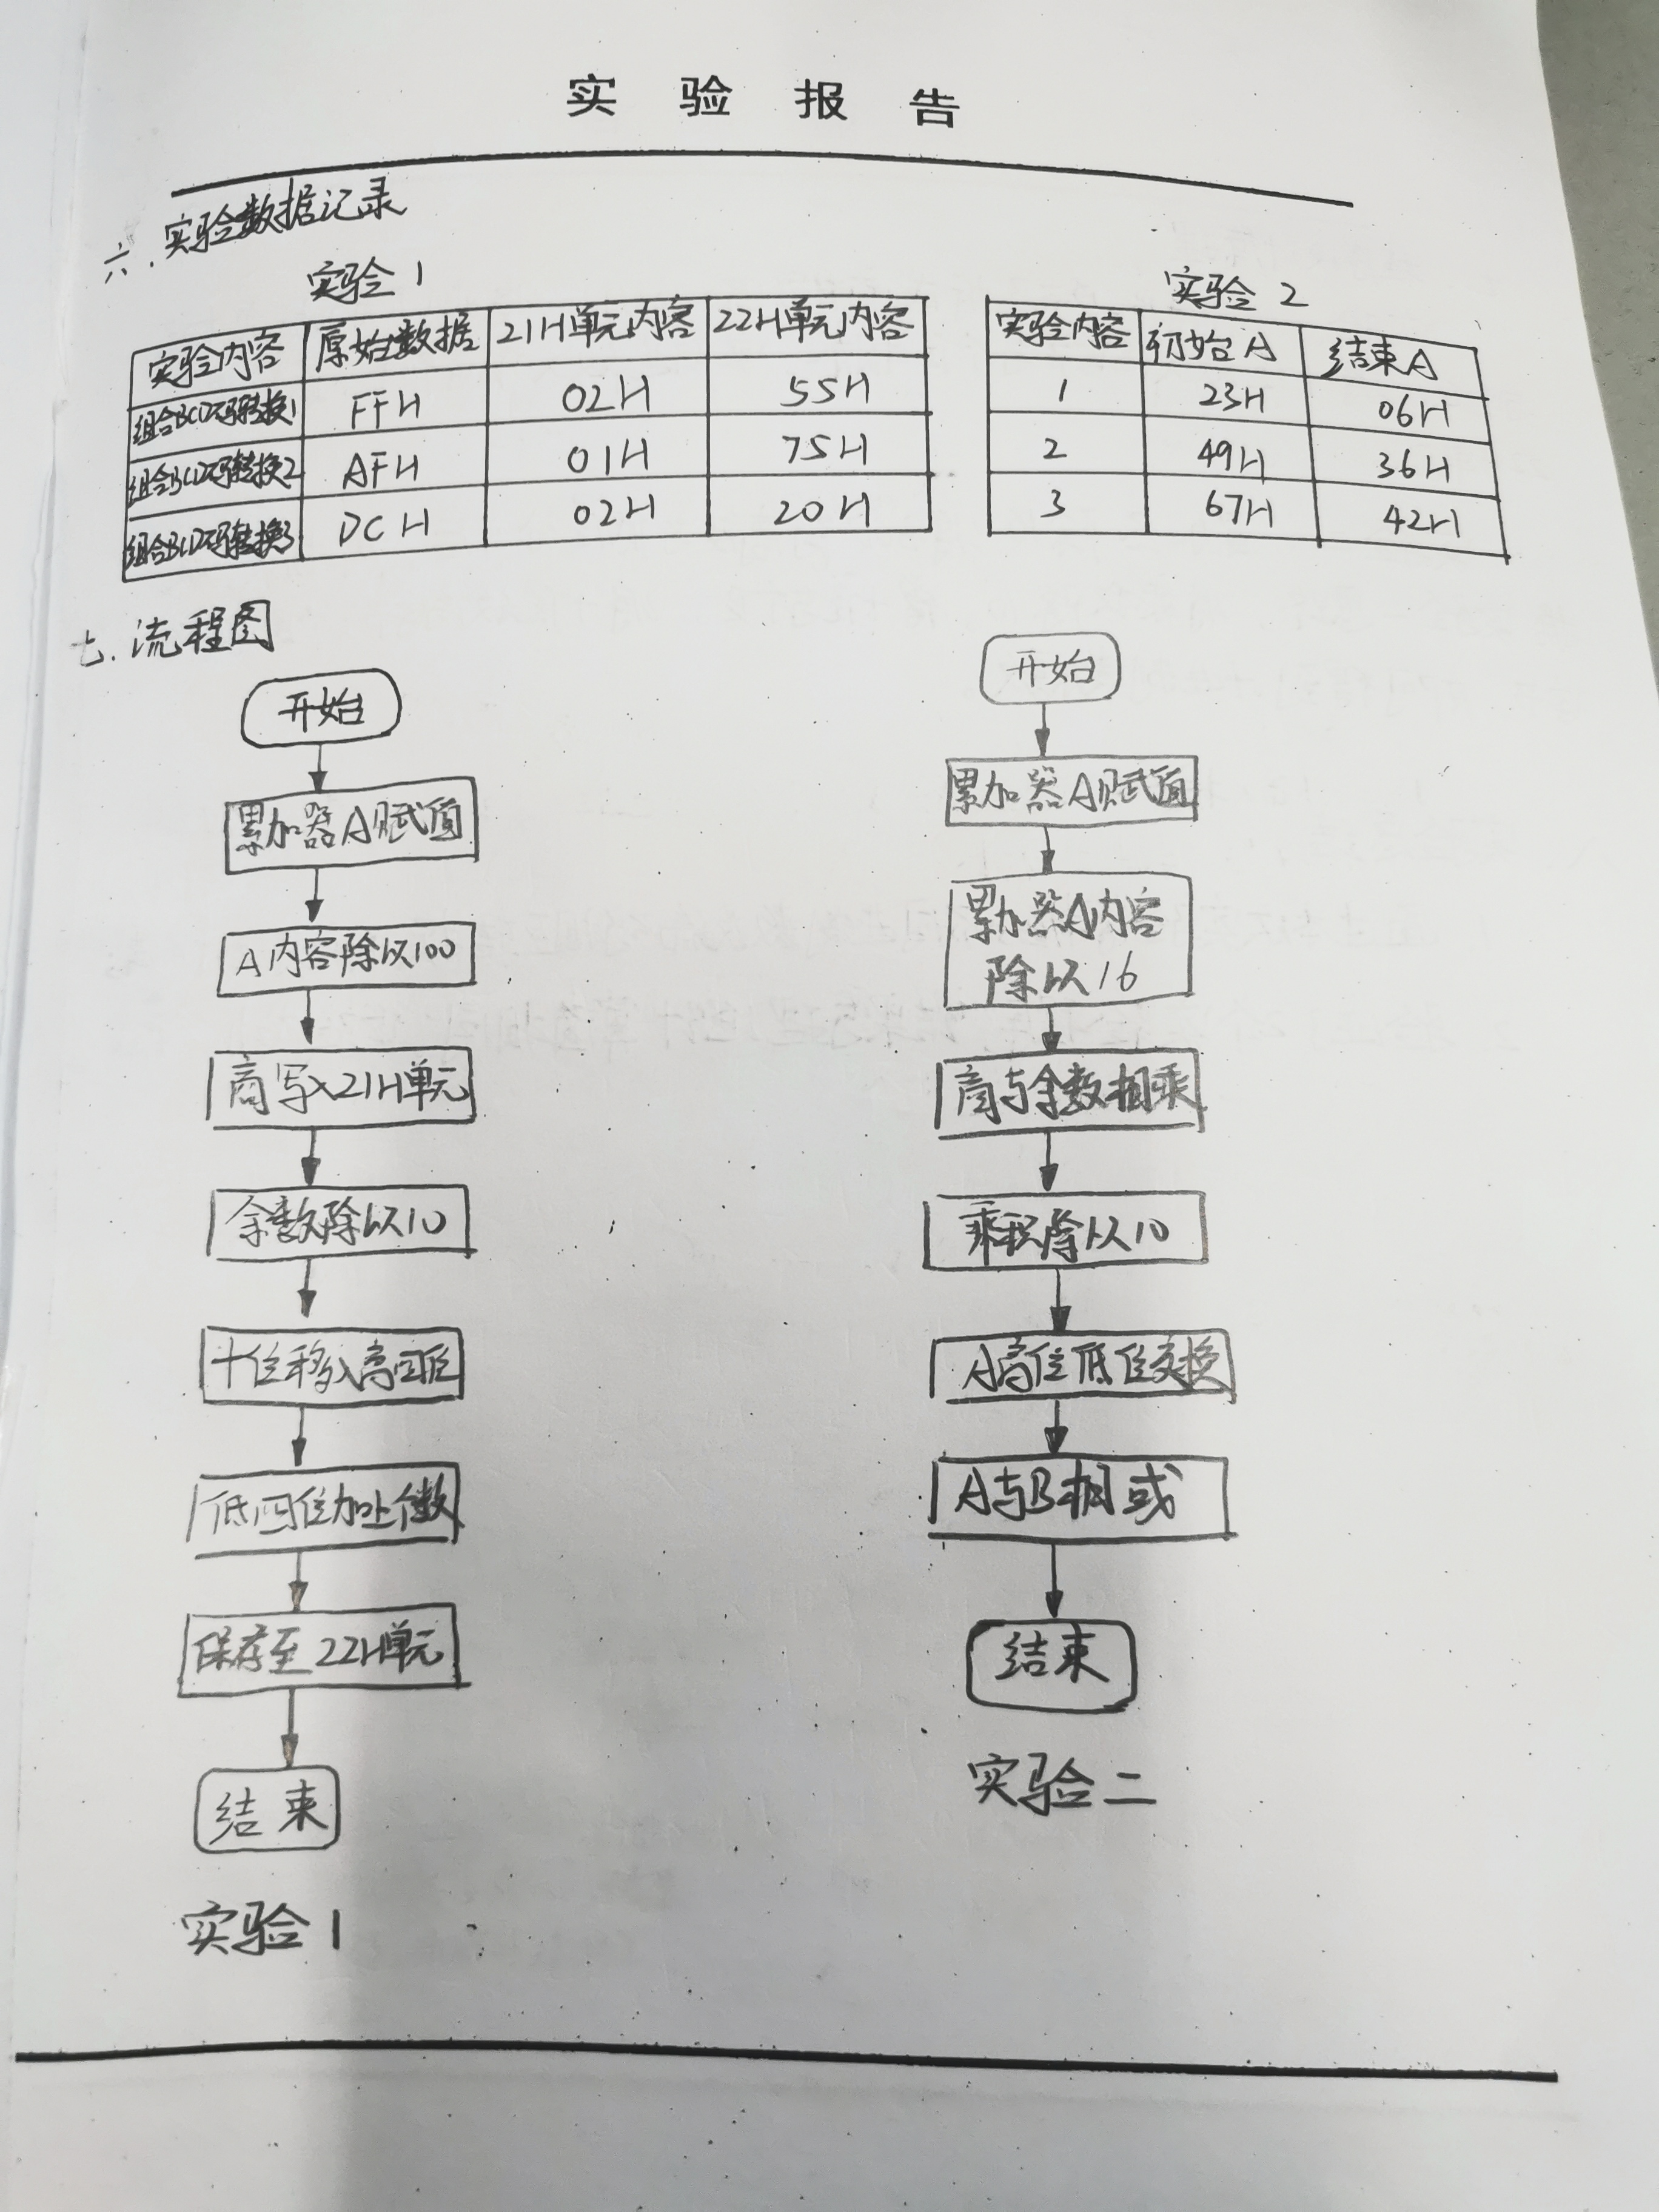 实验报告
六.实验数据记录
实验1
实验内容 原始数据 21H单元内容 22H单元内容
组合BCD码转换1 FFH 02H 55H
组合BCD码转换2 AFH 01H 75H
组合BCD码转换3 DCH 02H 20H
实验2
实验内容 初始A 结束A
1 23H 06H
2 49H 36H
3 67H 42H
七.流程图
开始
累加器A赋值
A内容除以100
商写入21H单元
余数除以10
十位移入高四位
低四位加上个数
保存至22H单元
结束
实验1
开始
累加器A赋值
累加器A内容
除以16
商与余数相乘
乘积除以10
A高位低位交换
A与B相或
结束
实验二